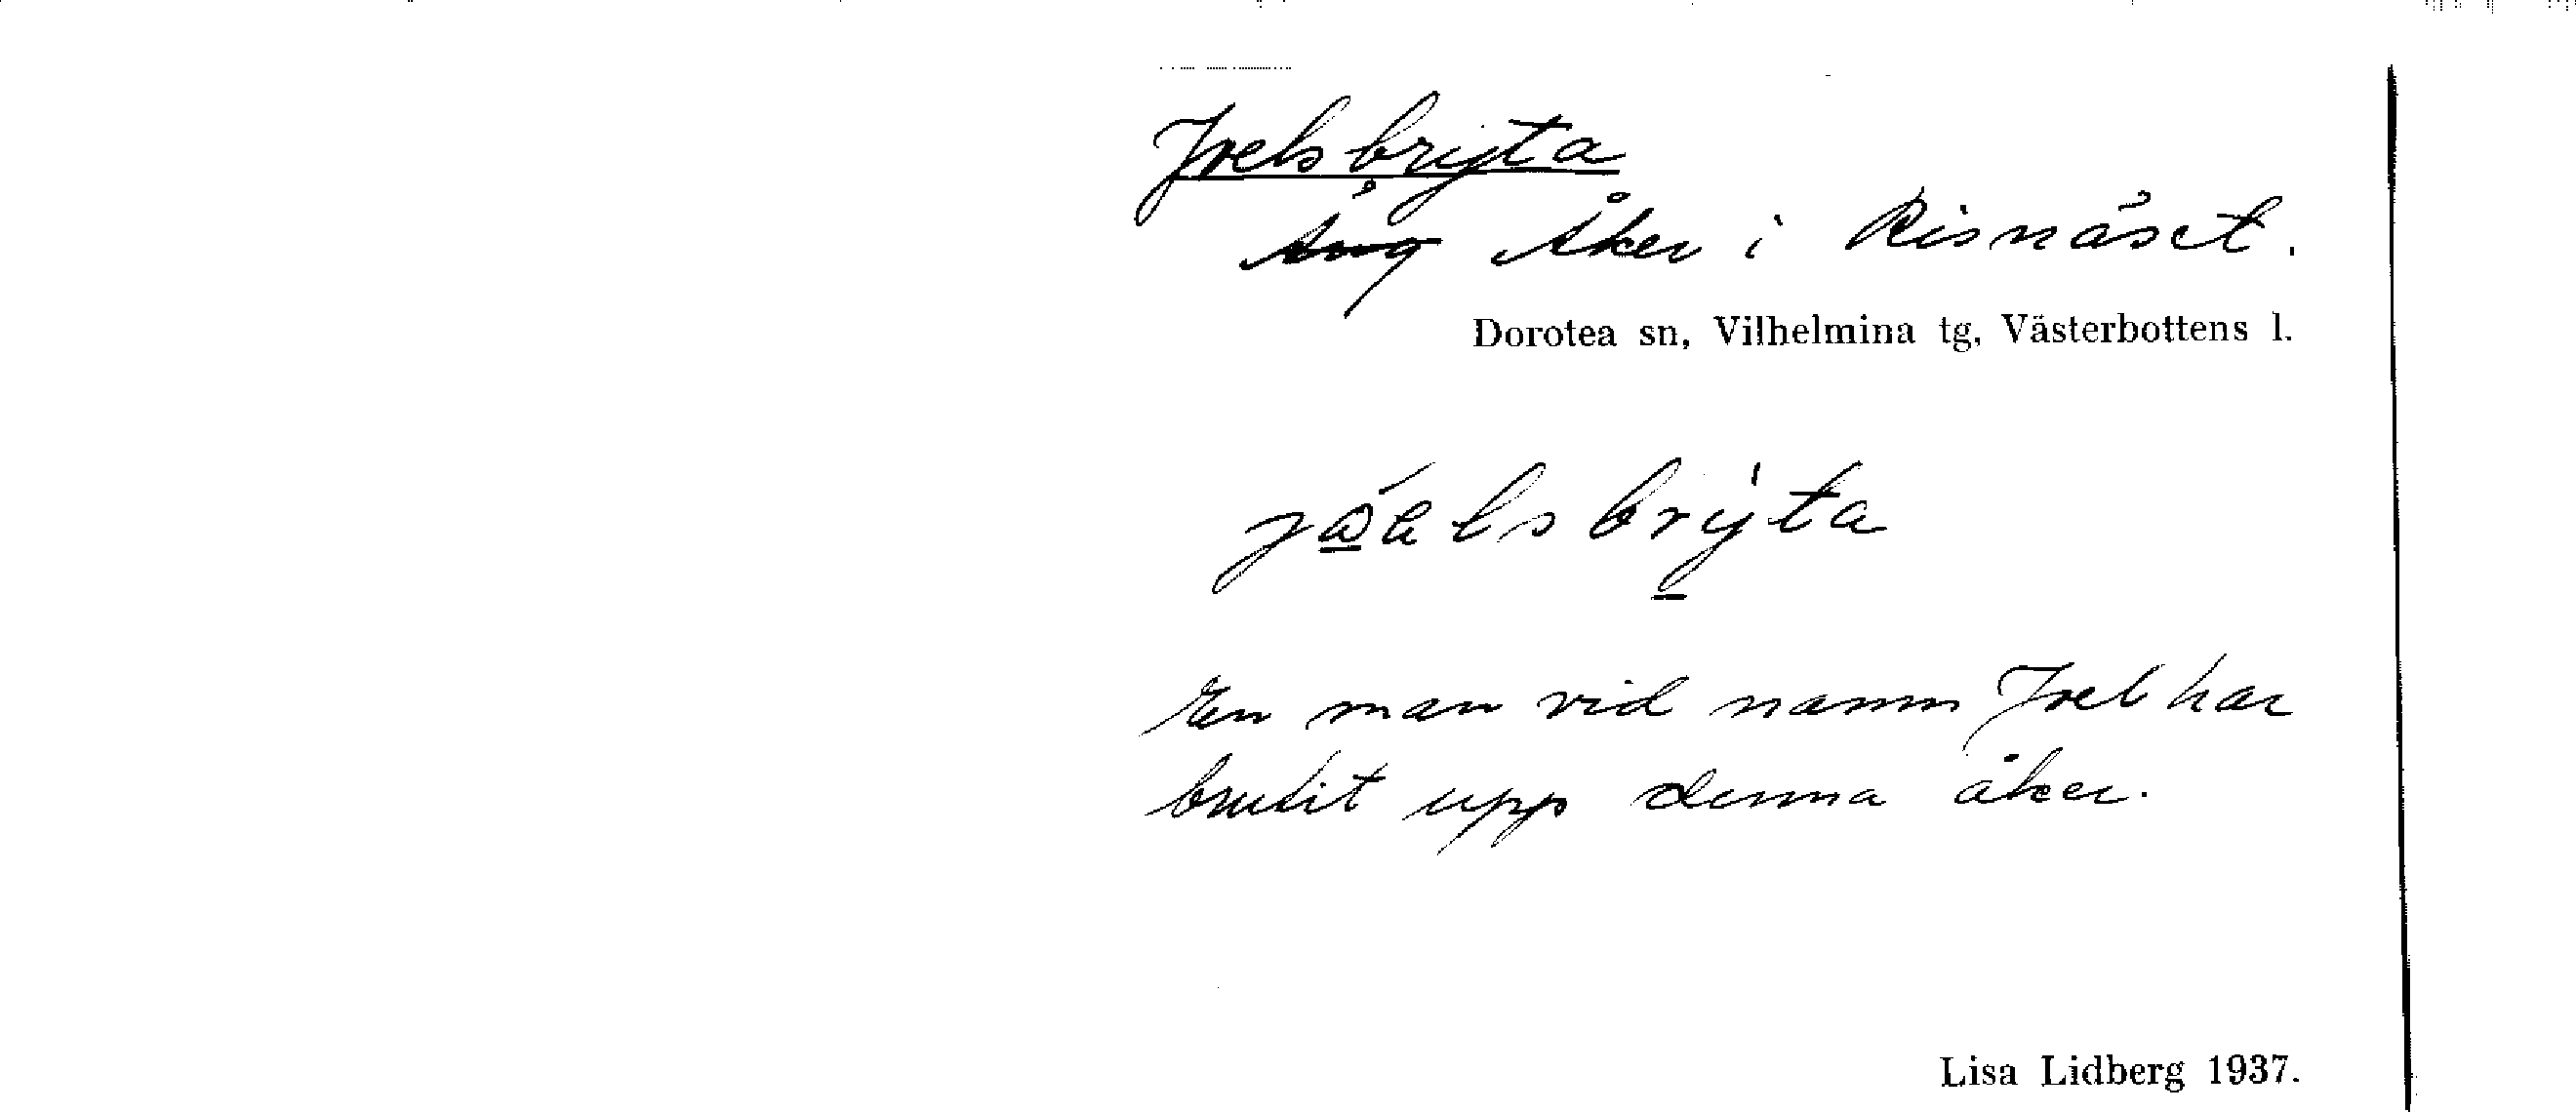 Joelsbryta
Äng Åker i Risnäset.
Dorotea sn, Vilhelmina tg, Västerbottens l.
En man vid namn Joel har
brutit upp denna åker.
Lisa Lidberg 1937.